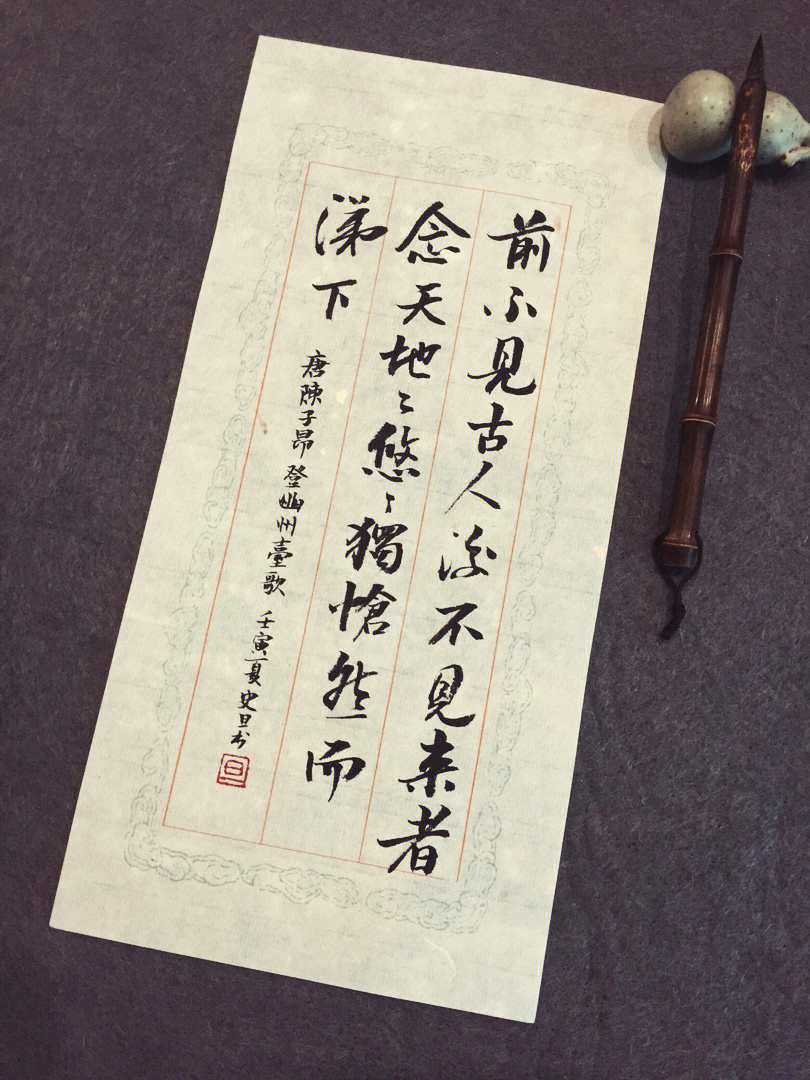 前不見古人后不見来者
念天地之悠〻獨愴然而
涕下
唐陳子昂登幽州臺歌 壬寅夏史旦书
旦